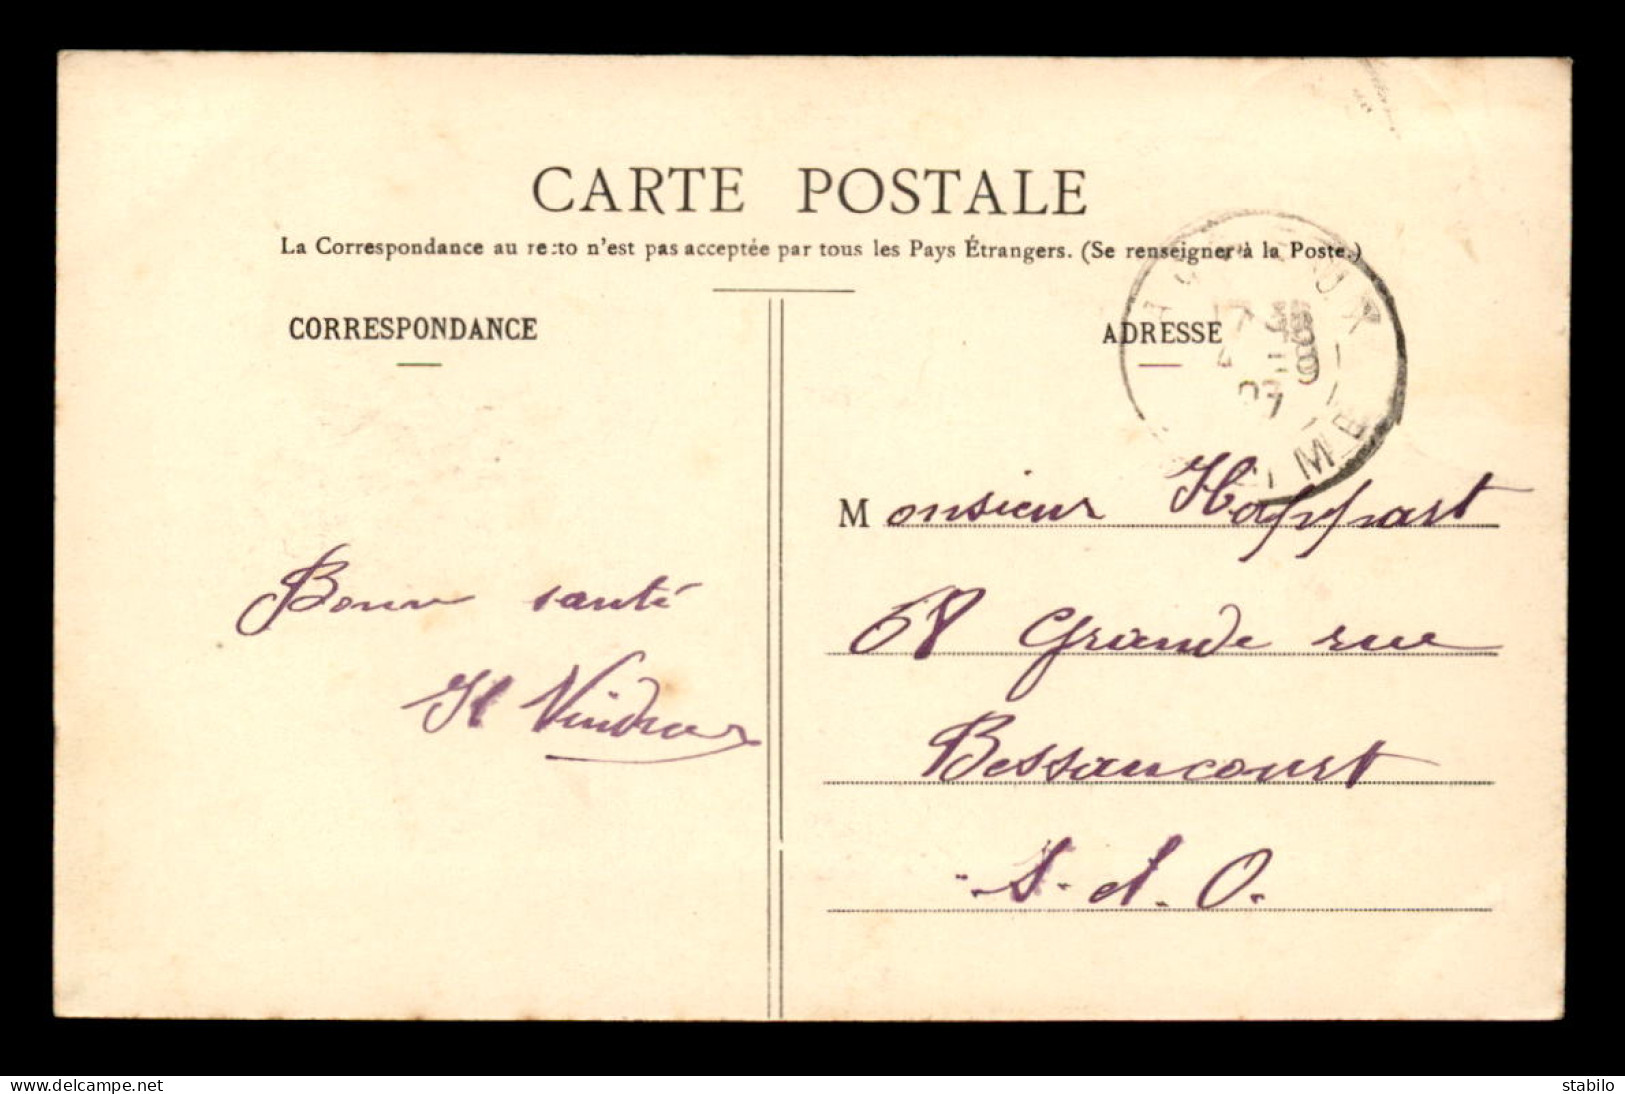 CARTE POSTALE
La Correspondance au recto n'est pas acceptée par tous les Pays Étrangers. (Se renseigner à la Poste.)
CORRESPONDANCE
ADRESSE
Monsieur Happart
68 Grande rue
Bessancourt
S. et O.
Bonne santé
delcampe.net
stabilo